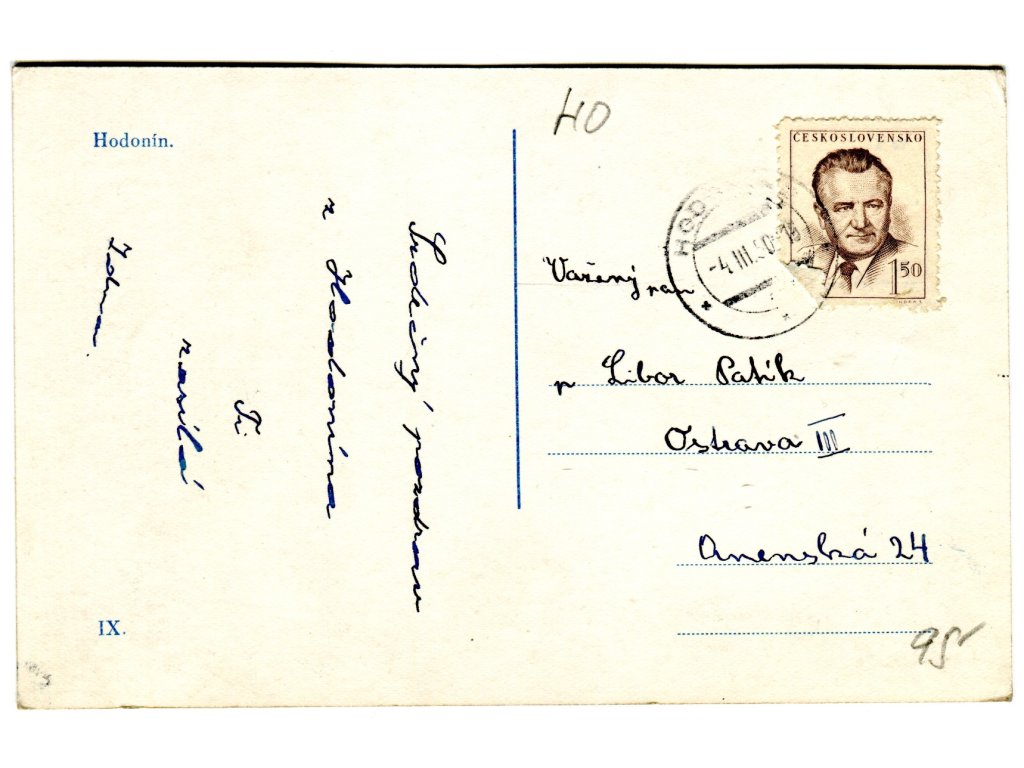 Hodonín.
Srdečný pozdrav
z Hodonína
Ti
zasílá
IX.
HO
ČESKOSLOVENSKO
1 50
HOD
-4.III.50-
Vážený pan
p Libor Patík
Ostrava III
Anenská 24
95